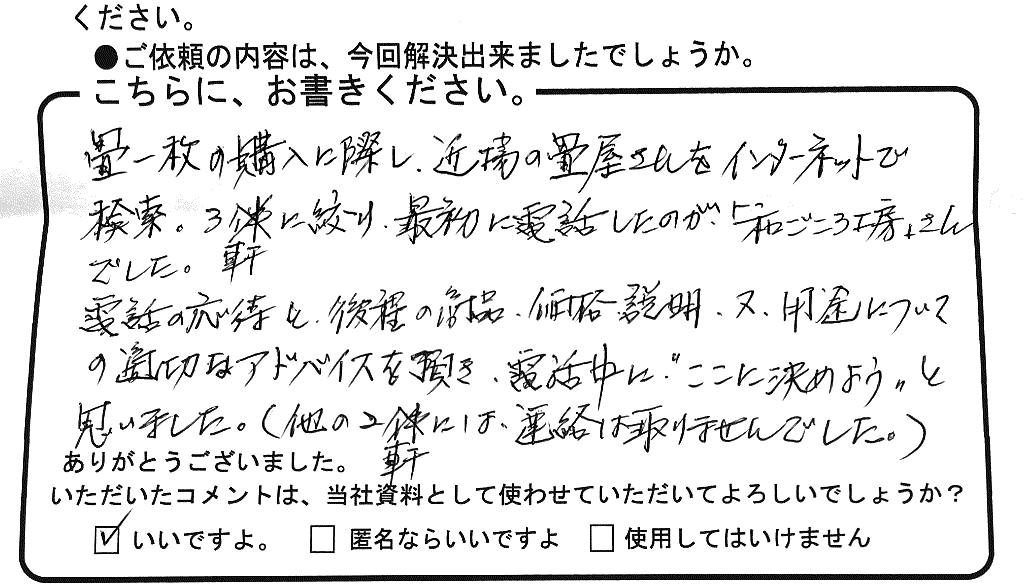 ください。
●ご依頼の内容は、今回解決出来ましたでしょうか。
こちらに、お書きください。
畳一枚の購入に際し、近場の畳屋さんをインターネットで
検索。3件に絞り、最初に電話したのが、「和ごころ工房」さん
軒
でした。
電話の応待と、後程の商品、価格説明、又、用途について
の適切なアドバイスを頂き、電話中に〝ここに決めよう〟と
思いました。(他の2件には、連絡は取りませんでした。)
軒
ありがとうございました。
いただいたコメントは、当社資料として使わせていただいてよろしいでしょうか?
☑ いいですよ。 □ 匿名ならいいですよ □ 使用してはいけません